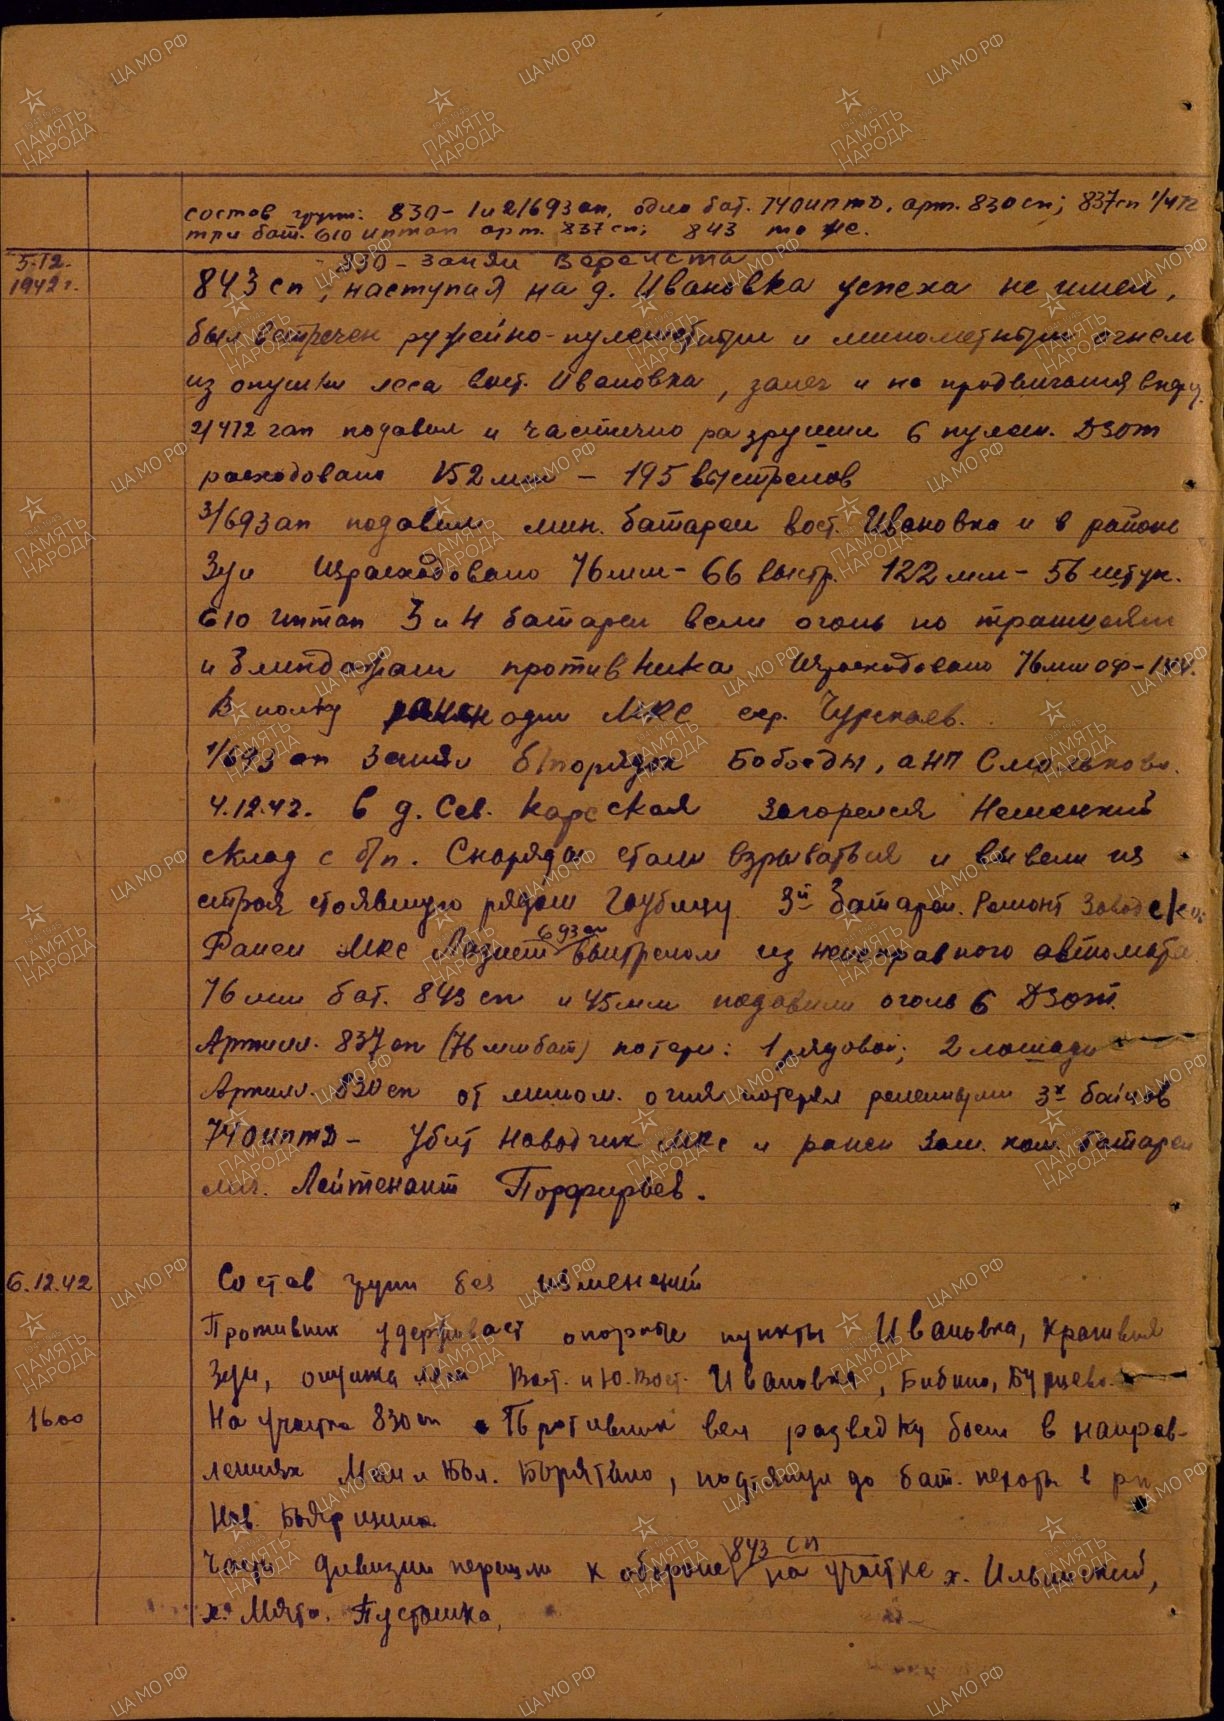 состав групп: 830 - 1 и 2/693 ап, одна бат. 740 иптд, арт. 830 сп; 837 сп 1/472
три бат. 610 иптап арт. 837 сп; 843 то же.
830 - занял Вереиста
5.12.
1942 г.
843 сп, наступая на д. Ивановка успеха не имел,
был встречен ружейно-пулеметным и минометным огнем
из опушки леса вост. Ивановка, залег и не продвигался вперед
2/472 гап подавил и частично разрушил 6 пулем. ДЗОТ
расходовано 152 мм - 195 выстрелов
3/693 ап подавил мин. батареи вост. Ивановка и в районе
Зуи Израсходовано 76 мм - 66 выстр. 122 мм - 56 штук.
610 иптап 3 и 4 батареи вели огонь по траншеям
и блиндажам противника Израсходовано 76 мм оф -
В полку ранен один МКС сер.
1/693 ап занял б/порядок Бобоеды, а НП
4.12.42. в д. Сев. Карская загорелся Немецкий
склад с б/п. Снаряды стали взрываться и вывели из
строя стоявшую рядом гаубицу 3й батареи. Ремонт Заводской
Ранен МКС 693 ап выстрелом из неисправного автомата
76 мм бат. 843 сп и 45 мм подавили огонь 6 ДЗОТ.
Артилл. 837 сп (76 мм бат) потери: 1 рядовой; 2 лошади
Артилл. 830 сп от мином. огня потерял ранеными 3х бойцов
740 иптд - Убит Наводчик МКС и ранен Зам. ком. батареи
мл. Лейтенант Порфирьев.
6.12.42
Состав групп без изменений
Противник удерживает опорные пункты Ивановка, Крапивня
Зуи, опушка леса Вост. и Ю.Вост. Ивановка, Бибино, Бурцево.
1600
На участке 830 сп Противник вел разведку боем в направ-
лениях Мал и Бол. Борятино, подтянул до бат. пехоты в рн
Нов. Бояршина
Части дивизии перешли к обороне 843 сп на участке х. Ильинский,
х. Мята. Пустошка,
ЦА МО РФ
ПАМЯТЬ
НАРОДА